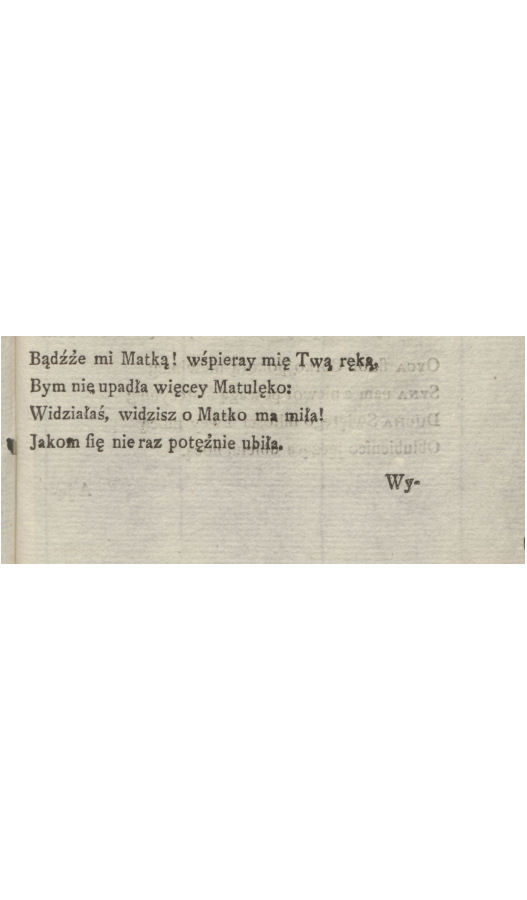 Bądźże mi Matką! wśpieray mię Twą ręką,
Bym nie upadła więcey Matulęko:
Widziałaś, widzisz o Matko ma miła!
Jakom ſię nie raz potężnie ubiła.
Wy-